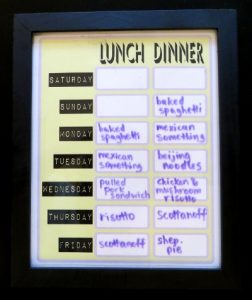 LUNCH DINNER
SATURDAY
SUNDAY
baked
spaghetti
MONDAY
baked
spaghetti
mexican
something
TUESDAY
mexican
something
beijing
noodles
WEDNESDAY
pulled
pork
sandwich
chicken &
mushroom
risotto
THURSDAY
risotto
Scottanoff
FRIDAY
scottanoff
shep.
pie